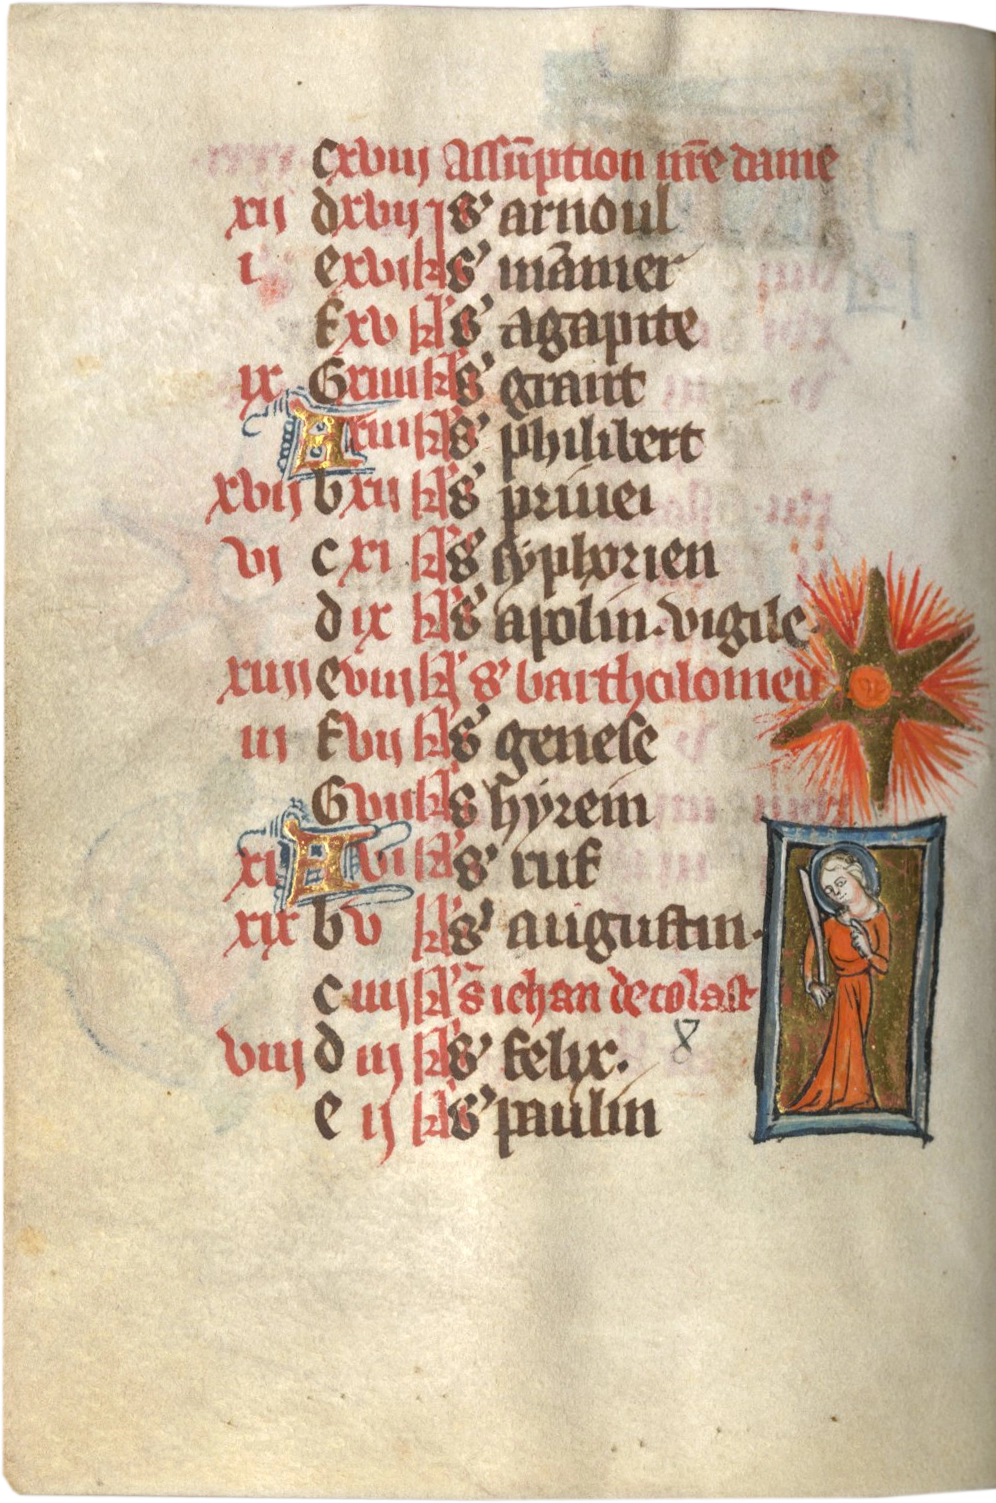 c xviij Assūption nr̄e dame
xij d xvij kl' s' arnoul
i e xvi kl' s' māmer
f xv kl' s' agapite
ix G xiiij kl' s' grant
A xiij kl' s' philibert
xvij b xij kl' s' priuei
vj c xi kl' s' syphorien
d ix kl' s' apolin. vigile.
xiiij e viij kl' s' bartholomeu
iij f vij kl' s' genese
G vij kl' s hyrein
xi A vi kl' s' ruf
xix b v kl' s' augustin.
c iiij kl' s̄ iehan decolast
viij d iij kl' s' felix.
e ij kl' s' paulin